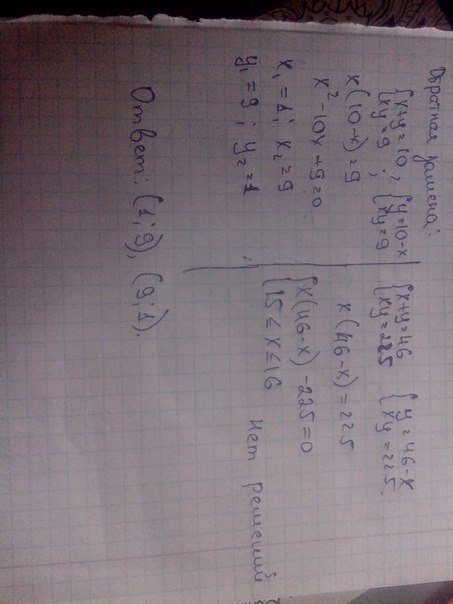 Обратная замена:
{x+y=10, {y=10-x
{xy=9 ; {xy=9
x(10-x)=9
x²-10x+9=0
x₁=1; x₂=9
y₁=9; y₂=1
{x+y=46 {y=46-x
{xy=225 {xy=225.
x(46-x)=225
{x(46-x)-225=0
{15≤x≤16
Нет решений
Ответ: (1;9), (9;1).